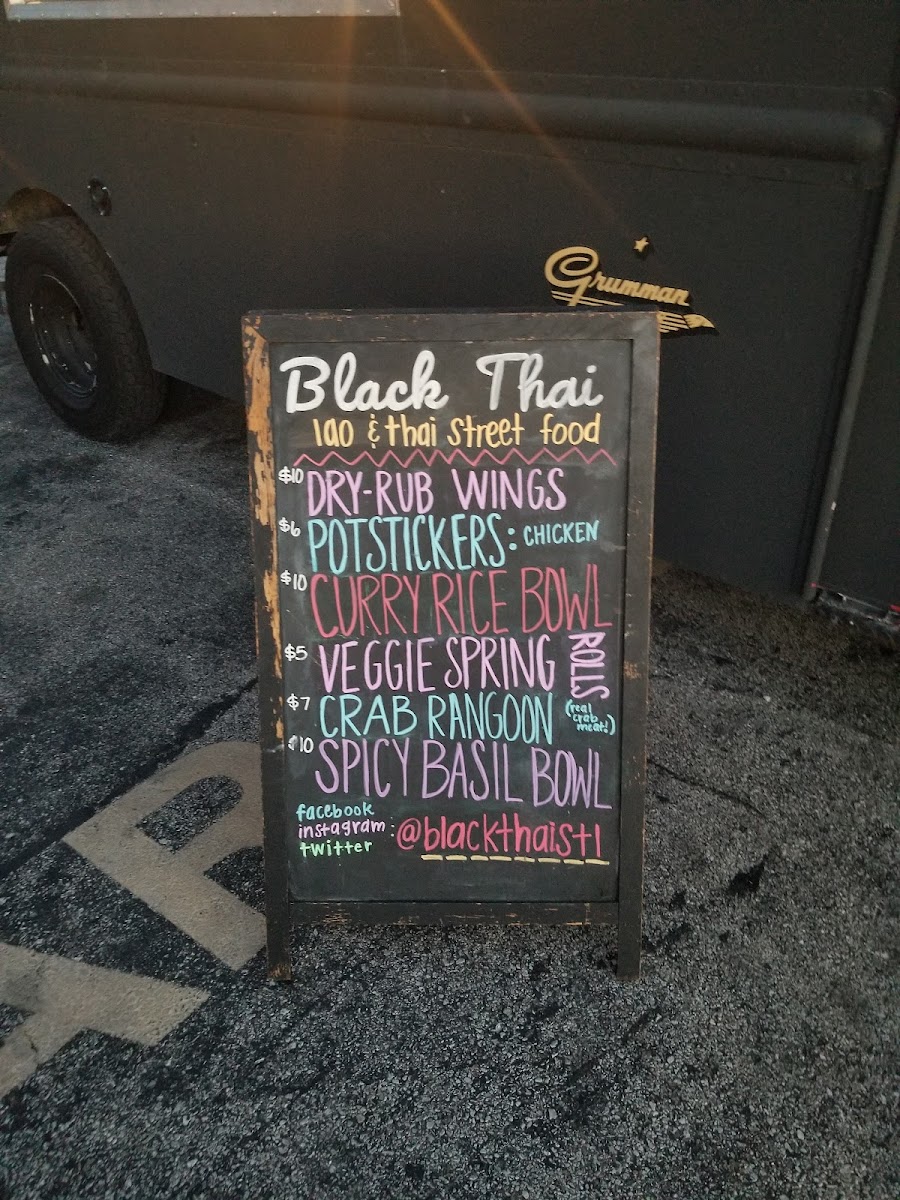 Grumman
Black Thai
lao & thai street food
$10 DRY-RUB WINGS
$6 POTSTICKERS: CHICKEN
$10 CURRY RICE BOWL
$5 VEGGIE SPRING ROLLS
$7 CRAB RANGOON (real crab meat!)
$10 SPICY BASIL BOWL
facebook
instagram : @blackthaistl
twitter
AR